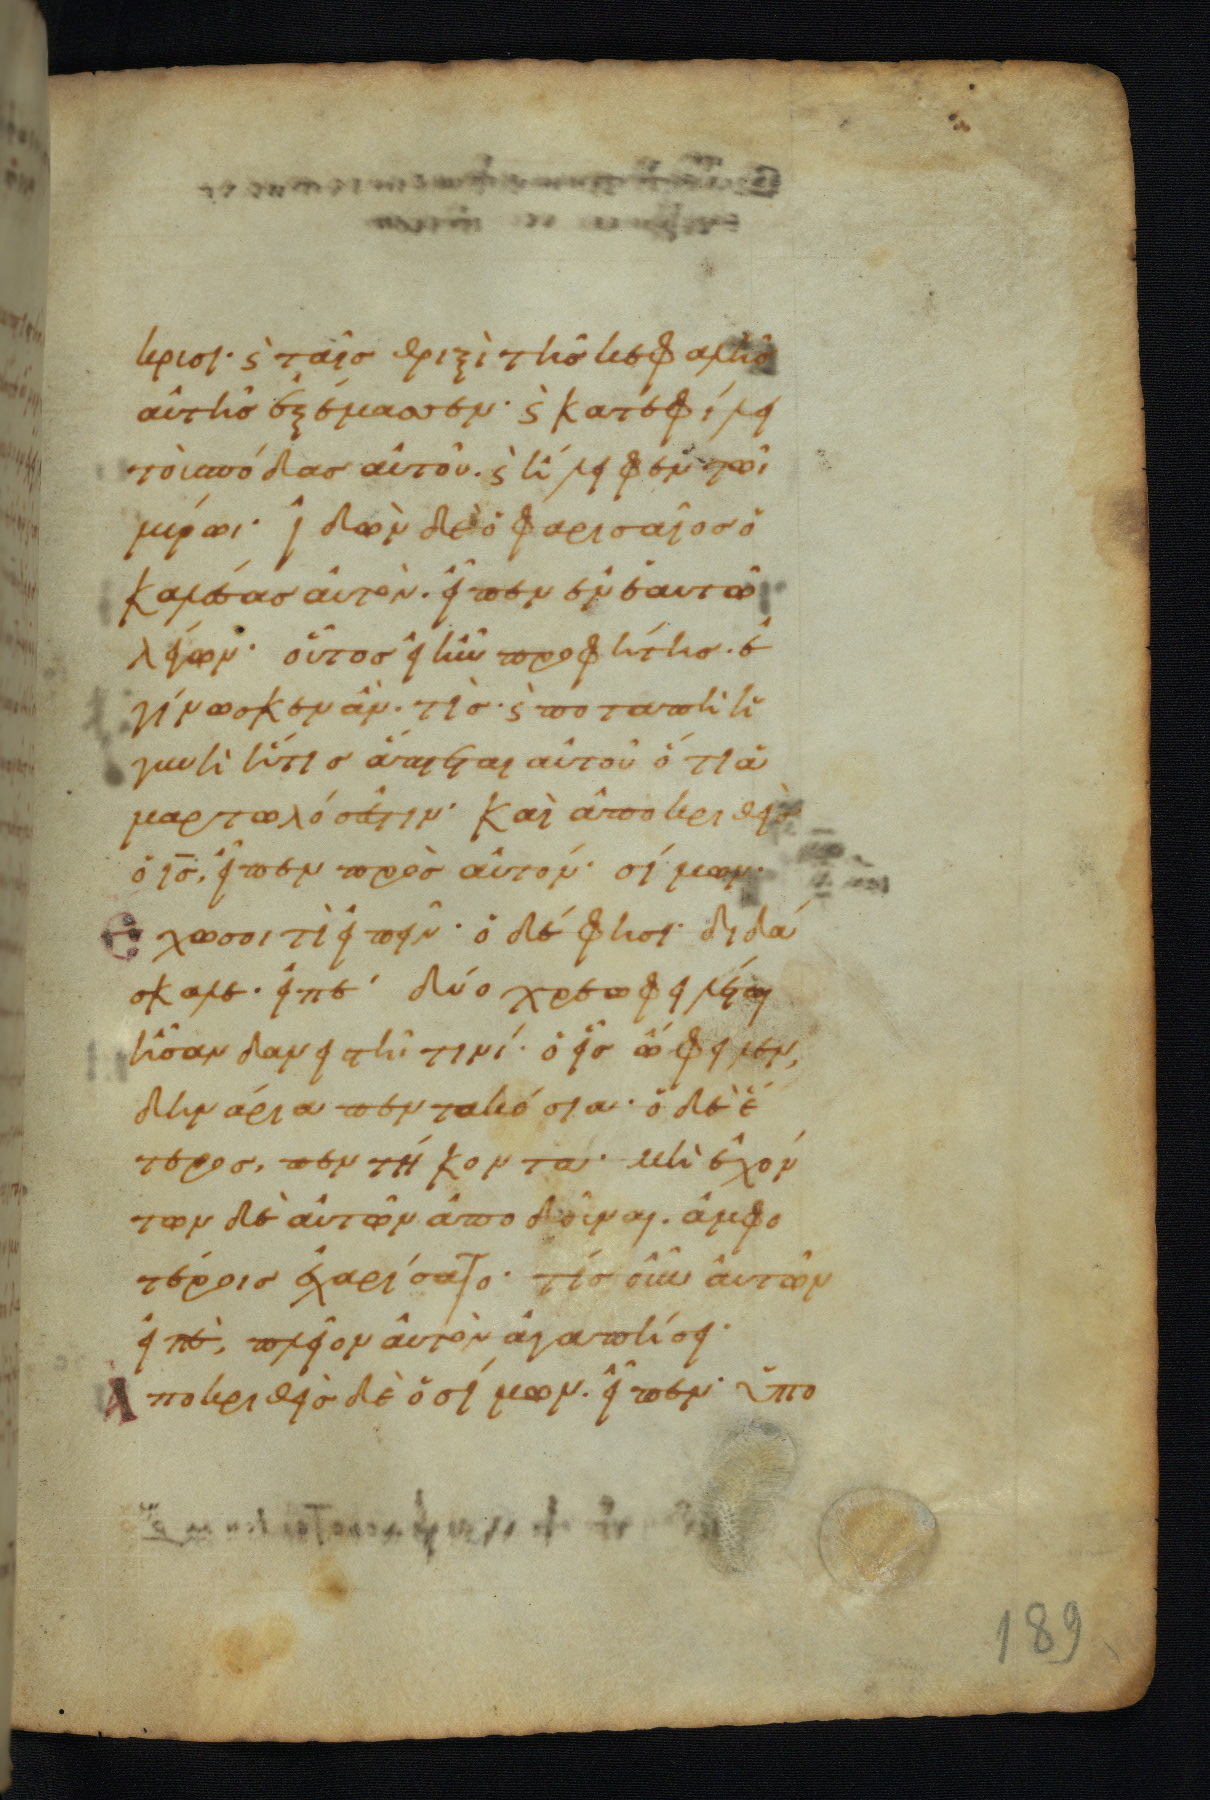 κρυσι· ϛ ταῖσ θριξὶ τῆσ κεφαλῆσ
αὐτῆσ ἐξέμασσεν· ϛ κατεφίλει
τοὺσ πόδασ αὐτοῦ. ϛ ἤλειφεν τῶι
μύρωι· ἰδὼν δὲ ὁ φαρισαῖοσ ὁ
καλέσασ αὐτὸν. εἶπεν ἐν ἑαυτῶ
λέγων· οὗτοσ εἰ ἦν προφήτησ. ἐ
γίνωσκεν ἂν. τίσ· ϛ ποταπὴ ἡ
γυνὴ ἥτισ ἅπτεται αὐτοῦ ὅτι ἁ
μαρτωλόσ ἐστιν· καὶ ἀποκριθεὶσ
ὁ ι̅σ̅, εἶπεν πρὸσ αὐτόν· σίμων·
ἔχω σοι τὶ εἰπεῖν· ὁ δέ φησι· διδά
σκαλε· εἰπέ· δύο χρεωφειλέται
ἦσαν δανειστῆ τινί· ὁ εἷσ ὤφειλεν,
δηνάρια πεντακόσια· ὁ δὲ ἕ
τεροσ, πεντήκοντα· μὴ ἐχόν
των δὲ αὐτῶν ἀποδοῦναι. ἀμφο
τέροισ ἐχαρίσατο· τίσ οὖν αὐτῶν
εἰπὲ, πλεῖον αὐτὸν ἀγαπήσει·
Ἀποκριθεὶσ δὲ ὁ σίμων. εἶπεν· ὑπο
189